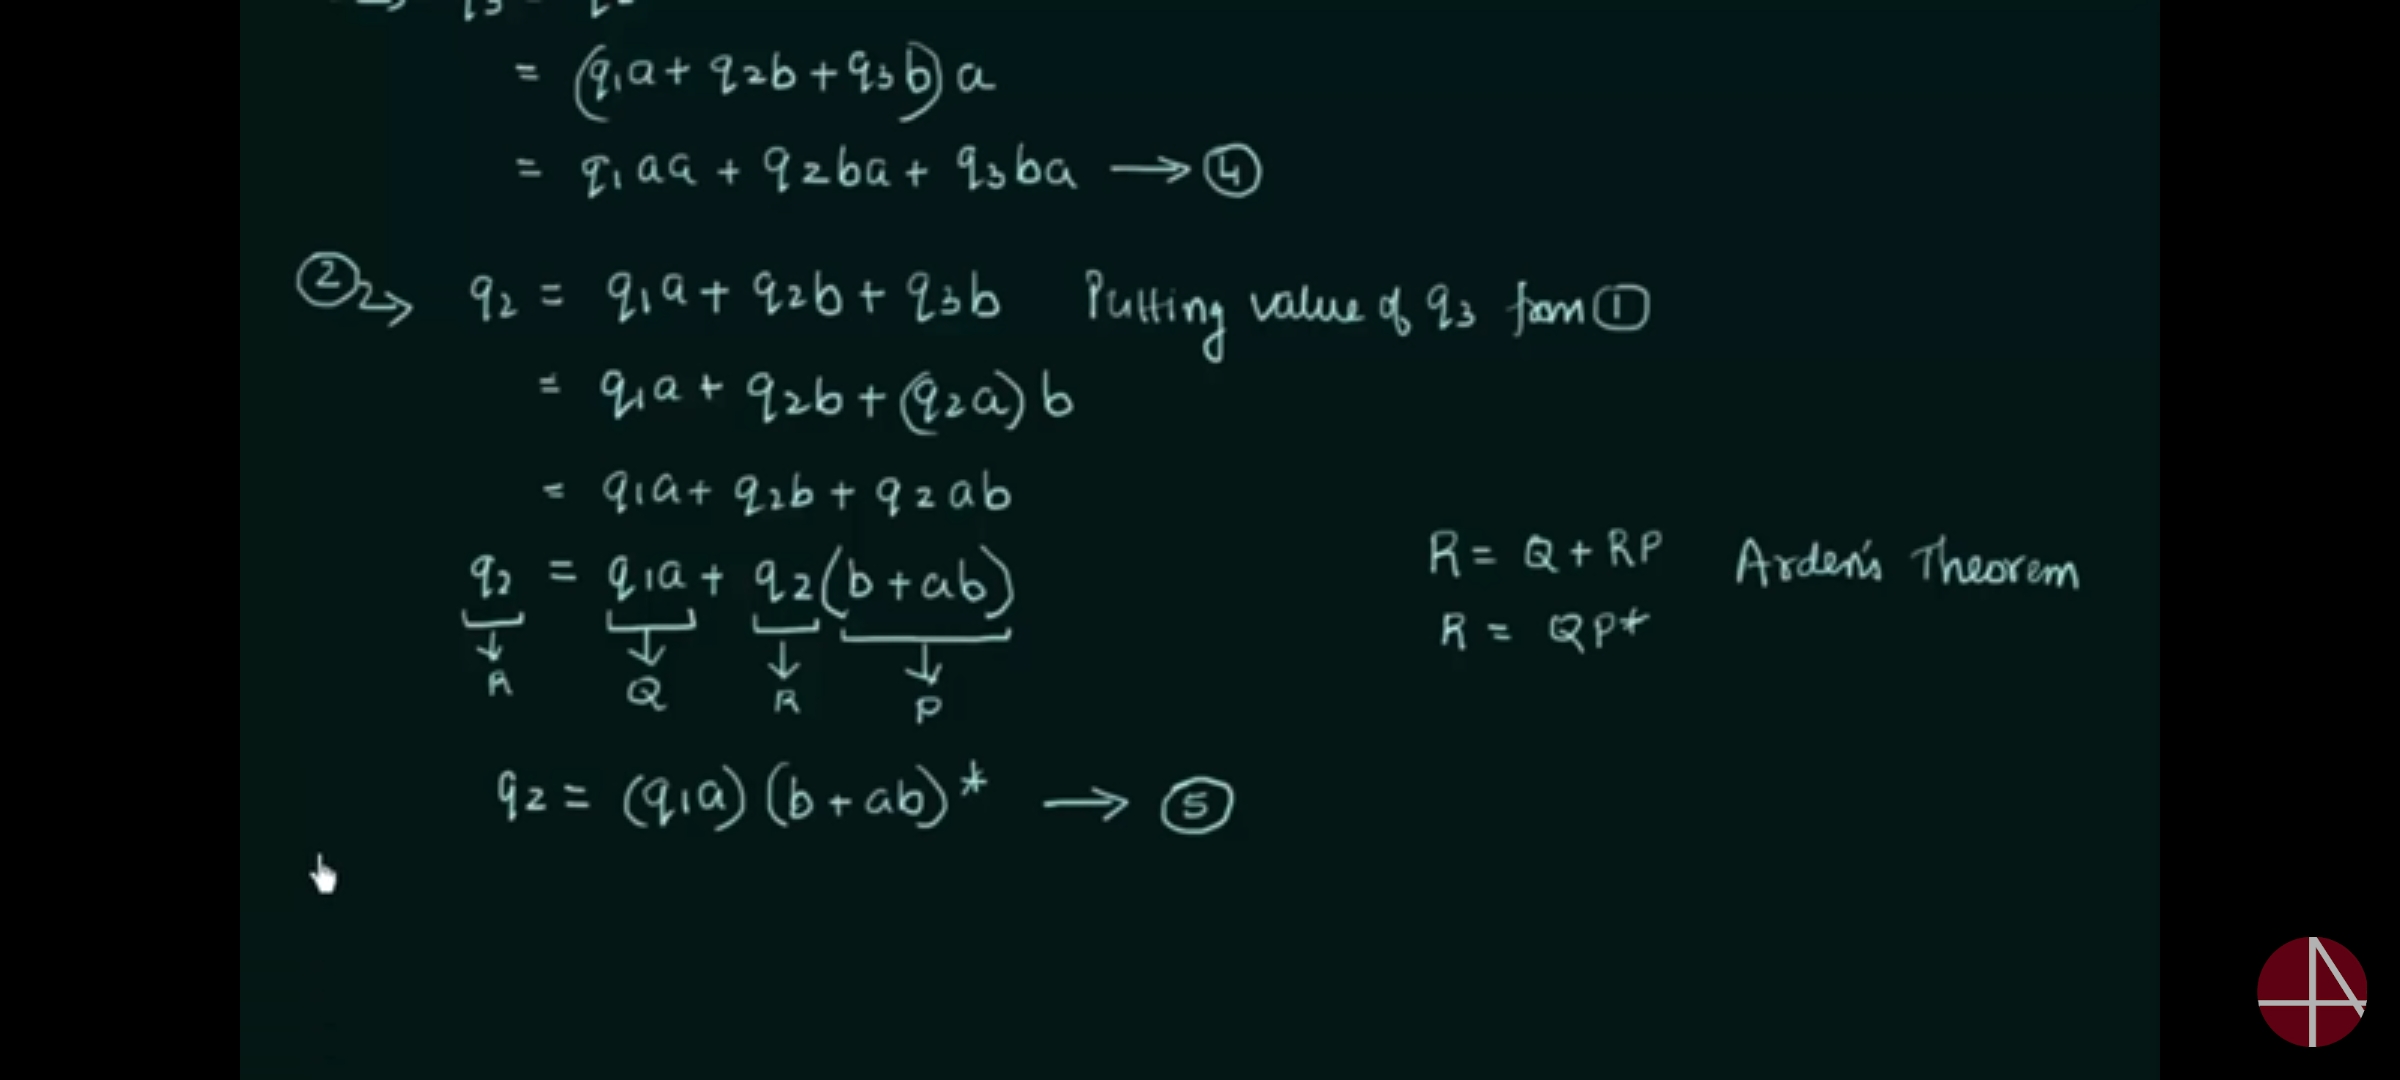 = (q₁a + q₂b + q₃b) a
= q₁aa + q₂ba + q₃ba → ④
② → q₂ = q₁a + q₂b + q₃b Putting value of q₃ from ①
= q₁a + q₂b + (q₂a) b
= q₁a + q₂b + q₂ab
q₂ = q₁a + q₂(b + ab)
R Q R P
R = Q + RP Arden's Theorem
R = QP*
q₂ = (q₁a) (b + ab)* → ⑤